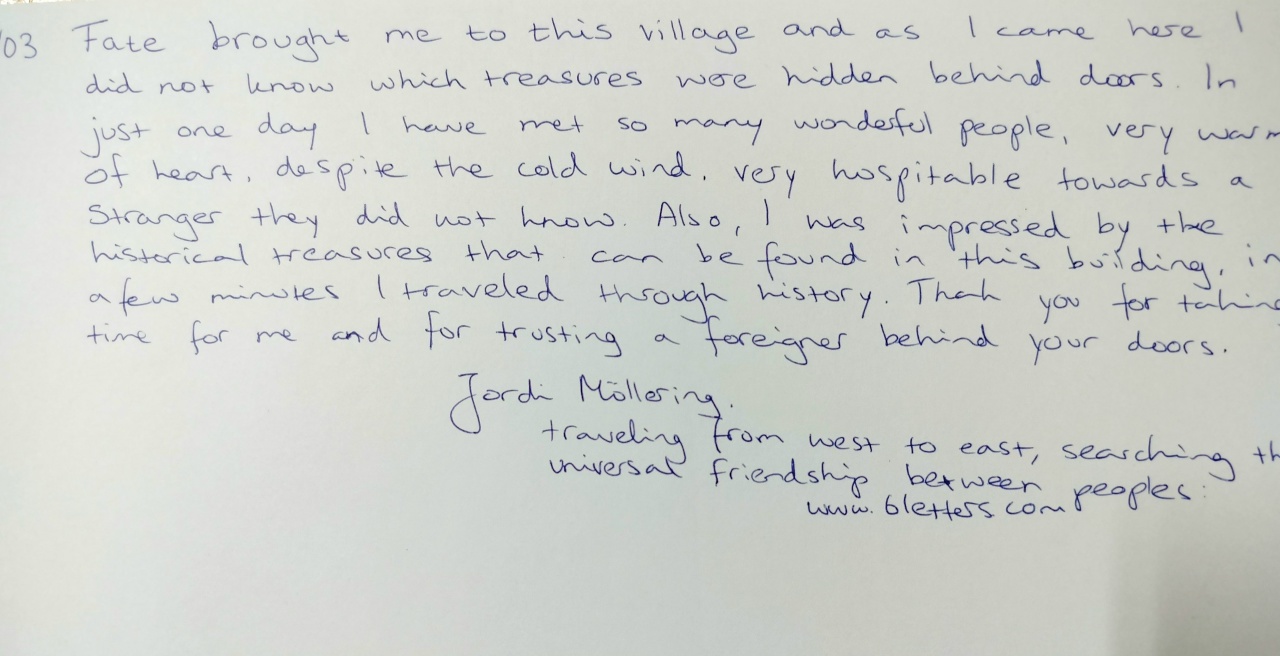 03 Fate brought me to this village and as I came here I
did not know which treasures were hidden behind doors. In
just one day I have met so many wonderful people, very warm
of heart, despite the cold wind, very hospitable towards a
stranger they did not know. Also, I was impressed by the
historical treasures that can be found in this building, in
a few minutes I traveled through history. Thank you for taking
time for me and for trusting a foreigner behind your doors.
Jordi Möllering.
traveling from west to east, searching th
universal friendship between peoples:
www.6letters.com